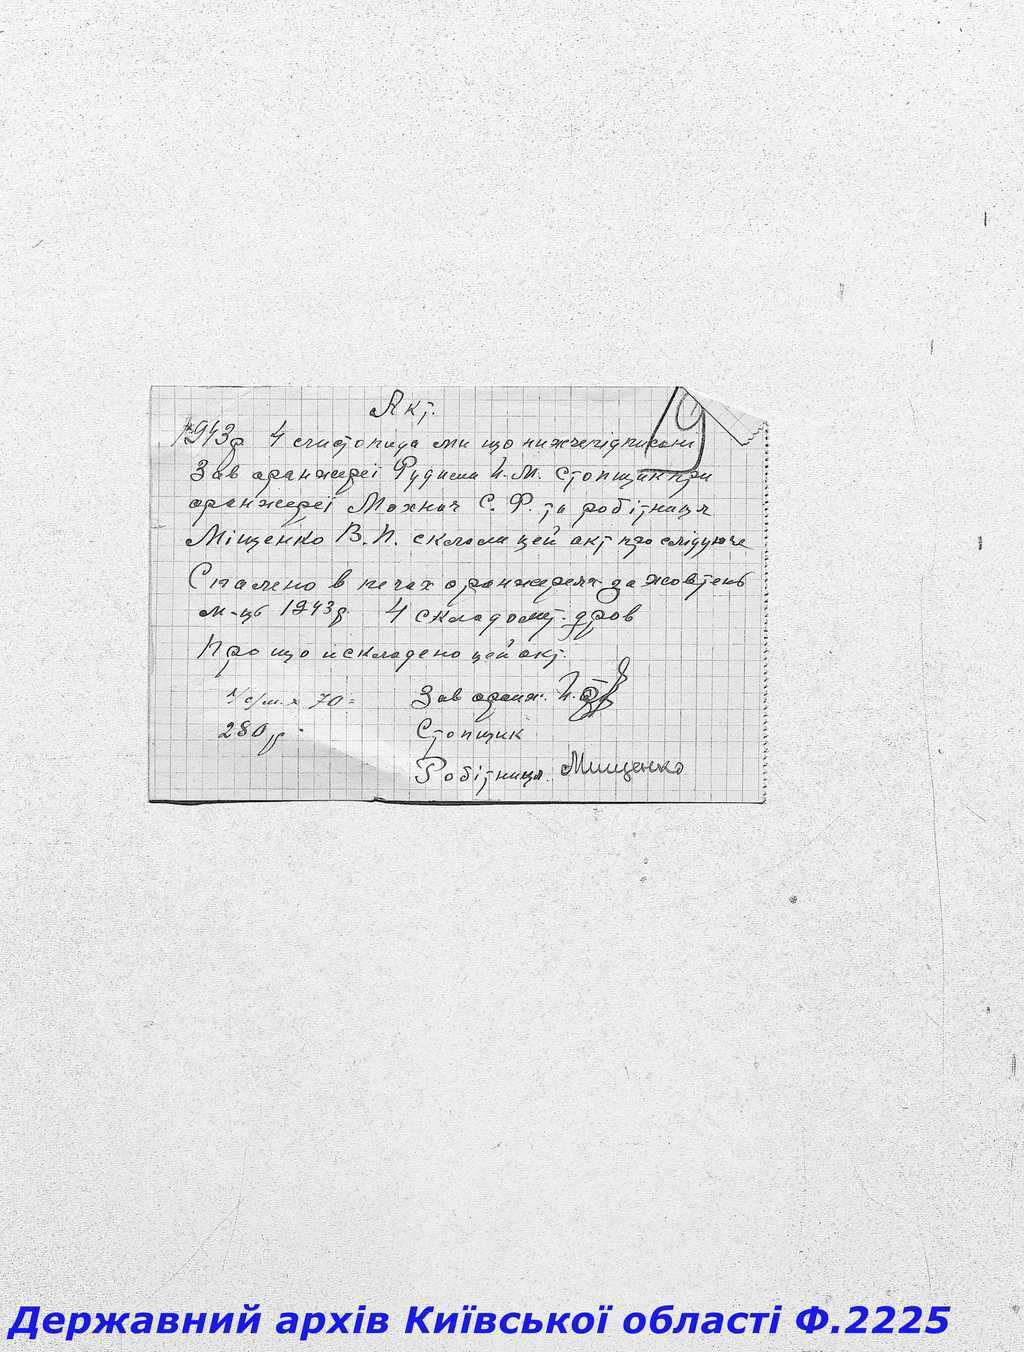 Акт.
19
1943р 4 листопада ми що нижчепідписані
Зав оранжереї Рудик І. М. Стопщик при
оранжереї Мохнач С. Ф. та робітниця
Міщенко В. П. склали цей акт про слідуюче
Спалено в печах оранжереях за жовтень
м-ць 1943р. 4 складомт. дров
Про що й складено цей акт.
с/м. х 70=
280р.
Зав оранж.
Стопщик
Робітниця. Мищенко
Державний архів Київської області Ф.2225